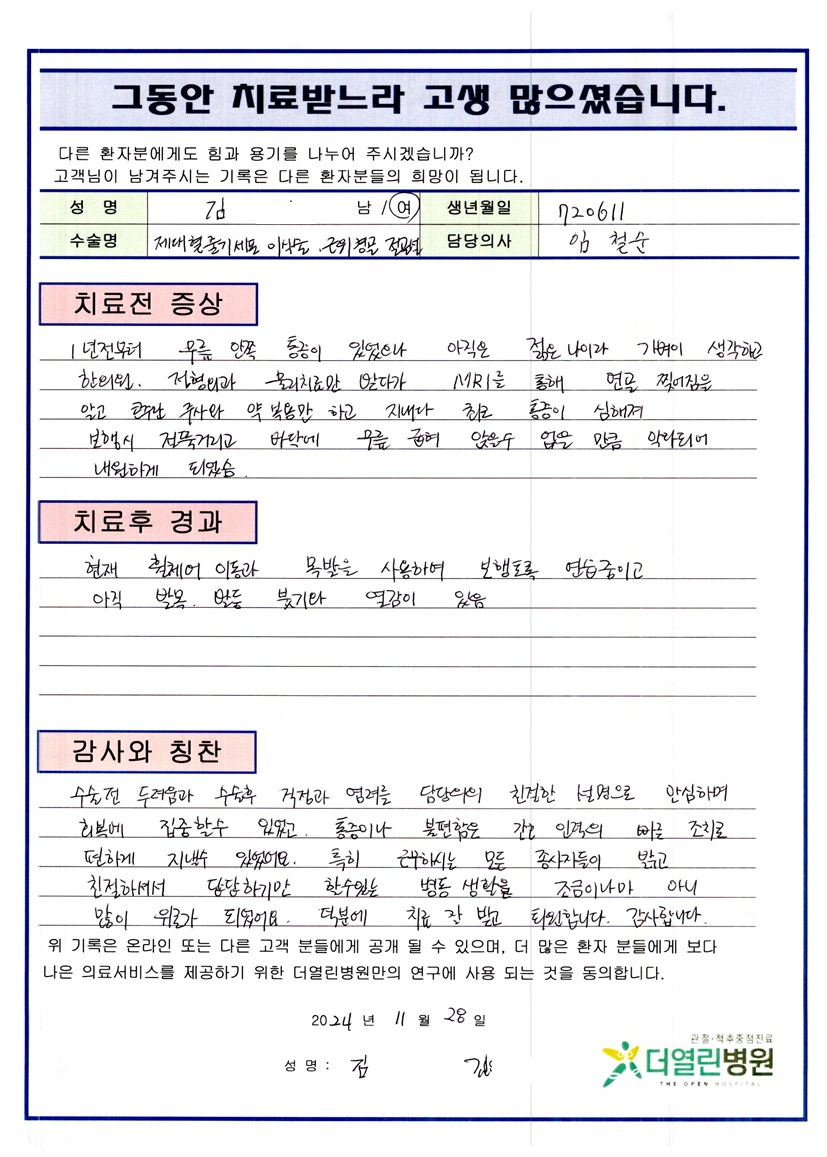 그동안 치료받느라 고생 많으셨습니다.
다른 환자분에게도 힘과 용기를 나누어 주시겠습니까?
고객님이 남겨주시는 기록은 다른 환자분들의 희망이 됩니다.
성 명 김 남 / 여 생년월일 720611
수술명 제대혈줄기세포 이식술. 근위경골 절골술 담당의사 임 철순
치료전 증상
1년전부터 무릎 안쪽 통증이 있었으나 아직은 젊은 나이라 가벼이 생각하고
한의원. 정형외과 물리치료만 받다가 MRI를 통해 연골 찢어짐을
알고 주사와 약 복용만 하고 지내다 최근 통증이 심해져
보행시 절뚝거리고 바닥에 무릎 굽혀 앉을수 없을 만큼 악화되어
내원하게 되었슴.
치료후 경과
현재 휠체어 이동과 목발을 사용하여 보행토록 연습중이고
아직 발목. 발등 붓기와 열감이 있음
감사와 칭찬
수술전 두려움과 수술후 걱정과 염려를 담당의의 친절한 설명으로 안심하며
회복에 집중할수 있었고. 통증이나 불편함은 간호 인력의 빠른 조치로
편하게 지낼수 있었어요. 특히 근무하시는 모든 종사자들이 밝고
친절하셔서 답답하기만 할수있는 병동 생활을 조금이나마 아니
많이 위로가 되었어요. 덕분에 치료 잘 받고 퇴원합니다. 감사합니다.
위 기록은 온라인 또는 다른 고객 분들에게 공개 될 수 있으며, 더 많은 환자 분들에게 보다
나은 의료서비스를 제공하기 위한 더열린병원만의 연구에 사용 되는 것을 동의합니다.
2024 년 11 월 28 일
성 명 : 김
관절·척추중점진료
더열린병원
THE OPEN HOSPITAL